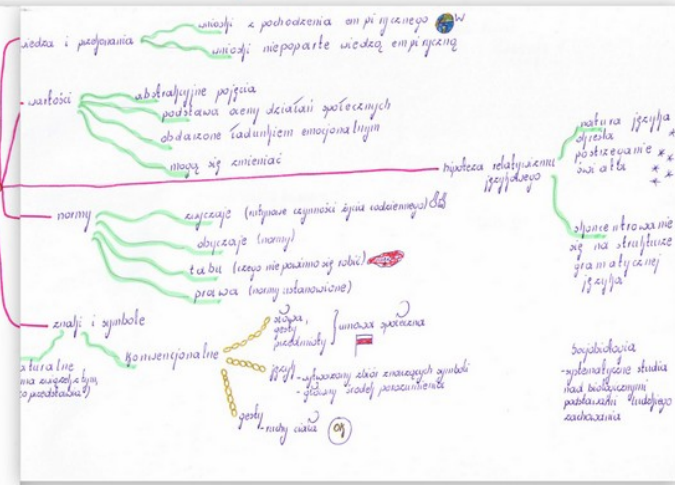 wiedza i przekonania
wnioski z pochodzenia empirycznego
wnioski niepoparte wiedzą empiryczną
wartości
abstrakcyjne pojęcia
podstawa oceny działań społecznych
obdarzone ładunkiem emocjonalnym
mogą się zmieniać
hipoteza relatywizmu
językowego
natura języka
określa
postrzeganie
świata
skoncentrowanie
się na strukturze
gramatycznej
języka
normy
zwyczaje (rutynowe czynności życia codziennego)
obyczaje (normy)
tabu (czego nie powinno się robić)
prawa (normy ustanowione)
znaki i symbole
aturalne
konwencjonalne
słowa,
gesty
przedmioty
umowa społeczna
język - wytworzony zbiór znaczących symboli
- główny środek porozumienia
gesty
- ruchy ciała
OK
Socjobiologia
- systematyczne studia
nad biologicznymi
podstawami ludzkiego
zachowania